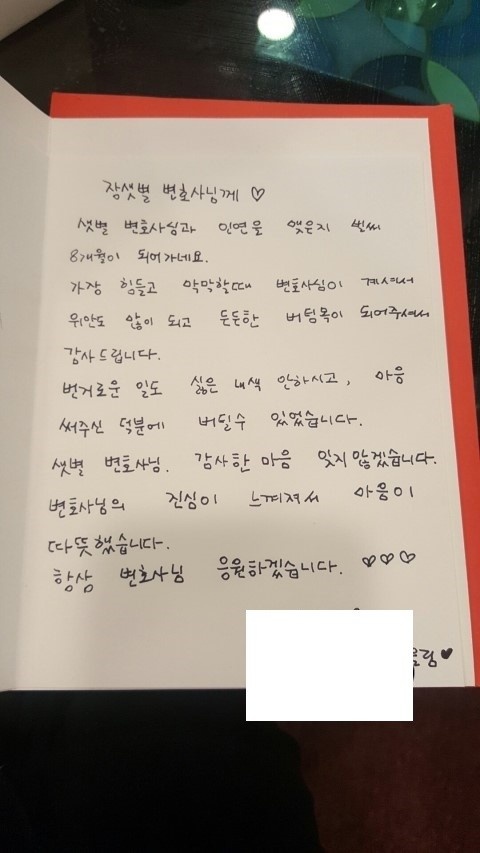 장샛별 변호사님께 ♡
샛별 변호사님과 인연을 맺은지 벌써
8개월이 되어가네요.
가장 힘들고 막막할때 변호사님이 계셔서
위안도 많이 되고 든든한 버팀목이 되어주셔서
감사드립니다.
번거로운 일도 싫은 내색 안하시고, 마음
써주신 덕분에 버틸수 있었습니다.
샛별 변호사님. 감사한 마음 잊지 않겠습니다.
변호사님의 진심이 느껴져서 마음이
따뜻했습니다.
항상 변호사님 응원하겠습니다. ♡♡♡
올림♥